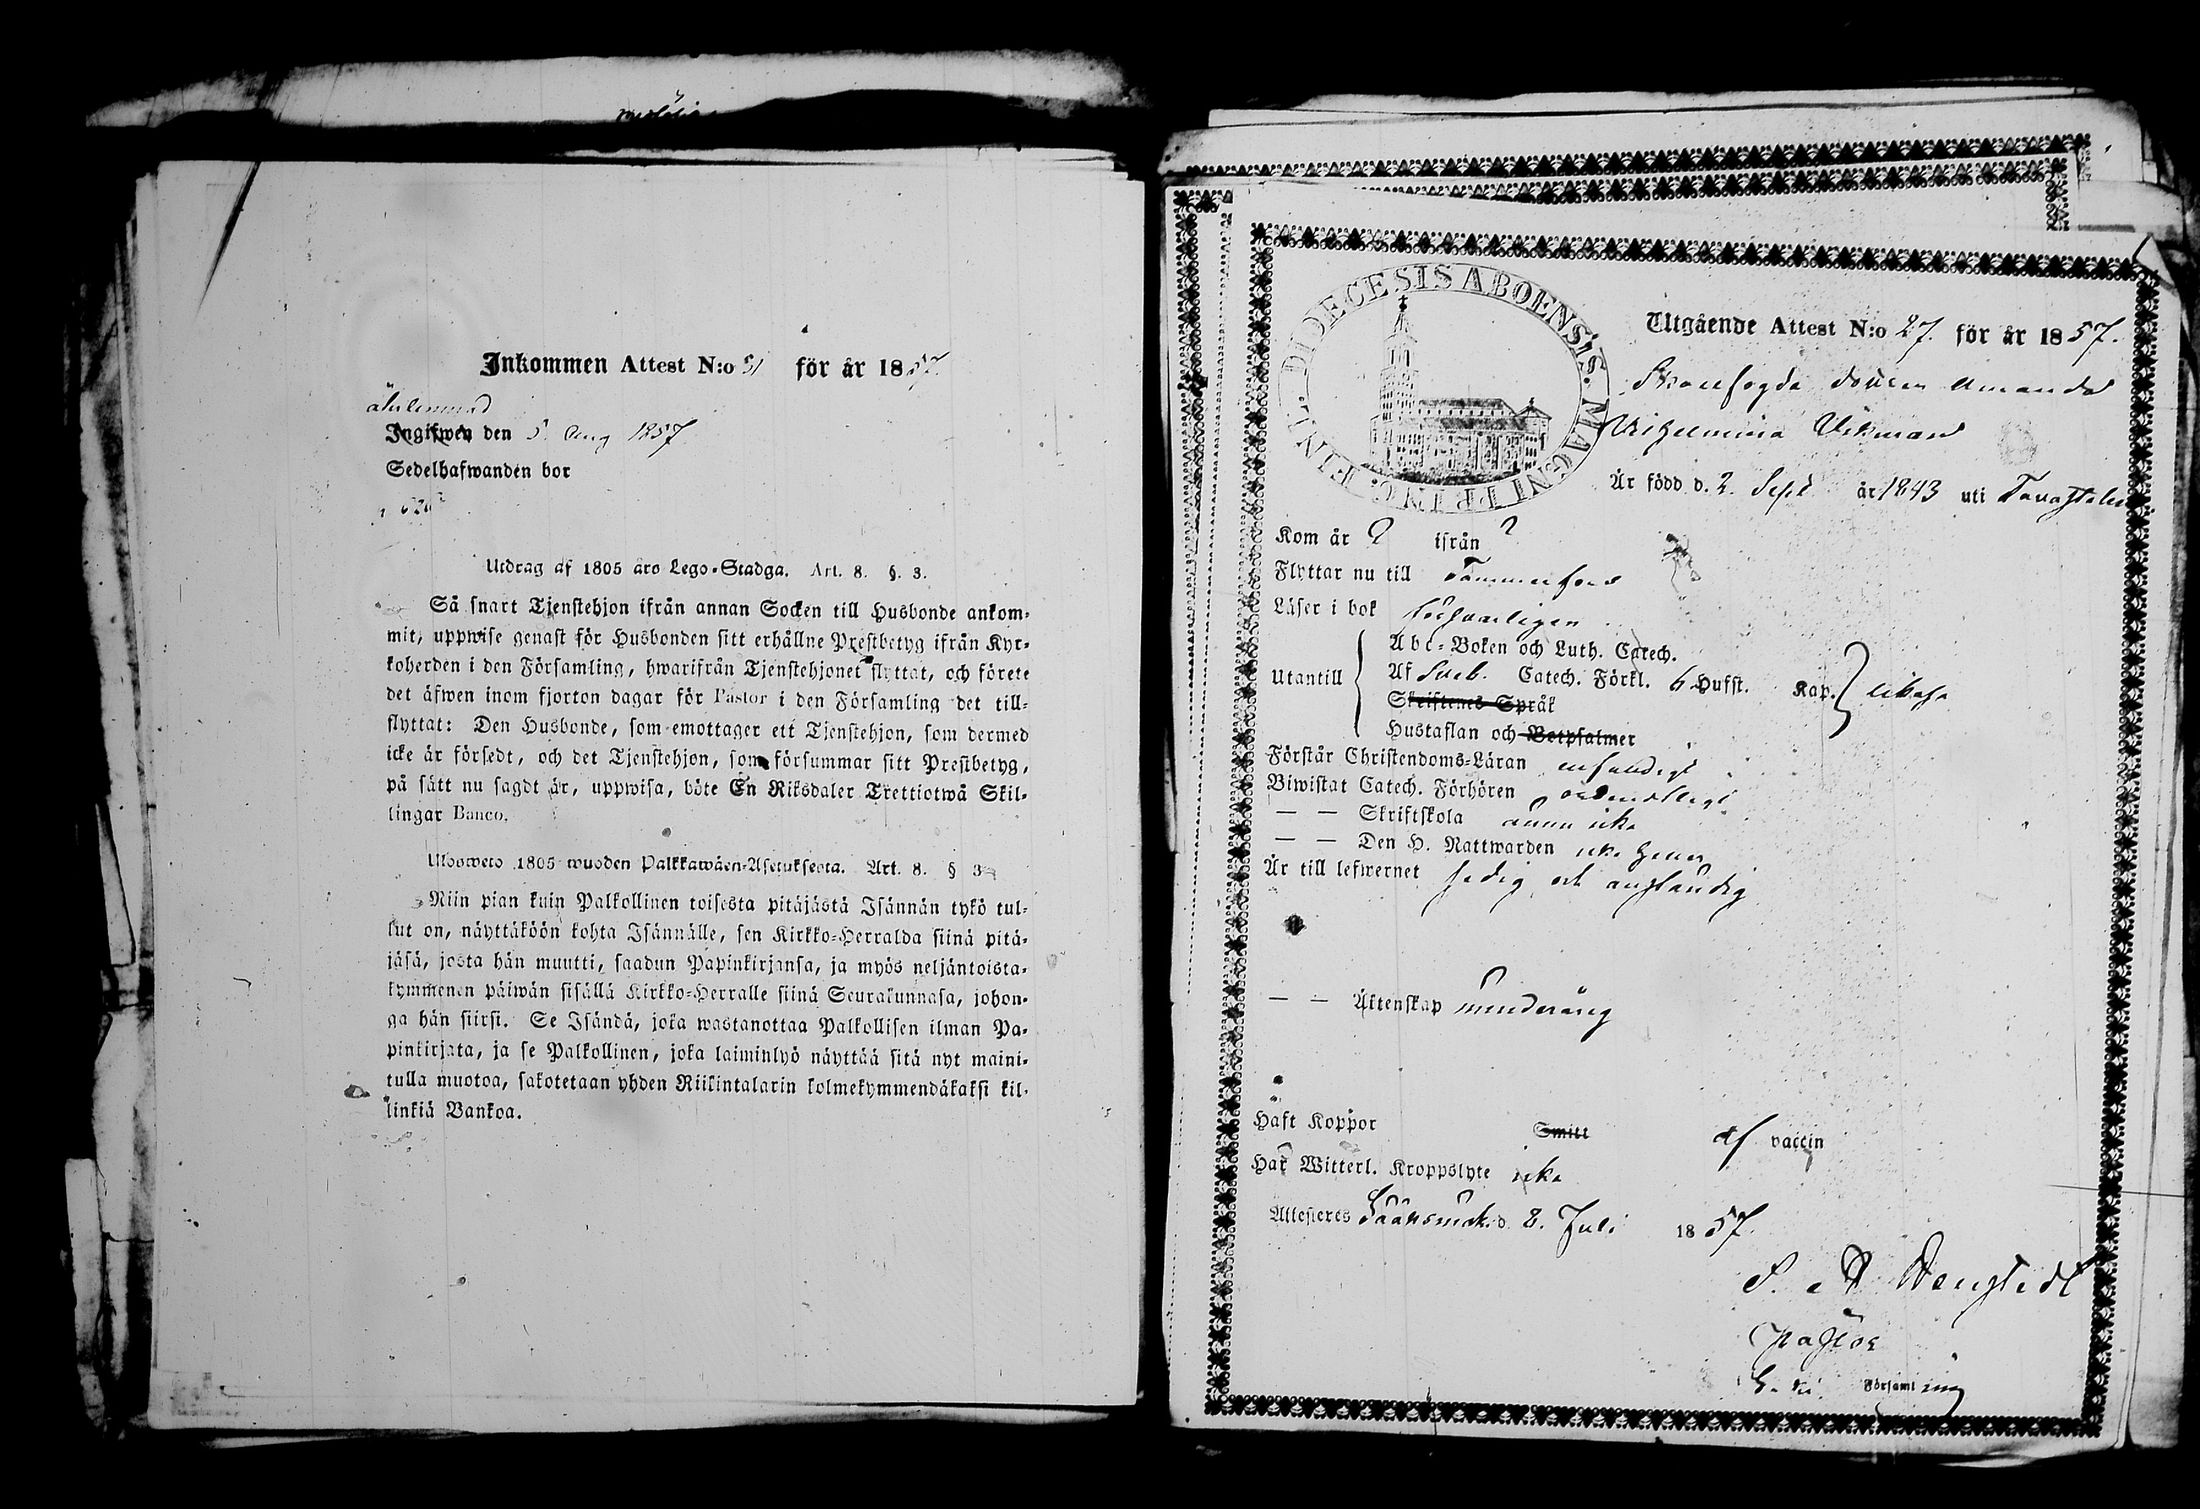 Inkommen Attest N:o 51 för år 1857.
Ingifwen den 5 Aug 1857
Sedelhafwanden bor
Utdrag af 1805 års Lego-Stadga. Art. 8. §. 3.
Så snart Tjenstehjon ifrån annan Socken till Husbonde ankom-
mit, uppwise genast för Husbonden sitt erhållne Prestbetyg ifrån Kyr-
koherden i den Församling, hwarifrån Tjenstehjonet flyttat, och förete
det äfwen inom fjorton dagar för Pastor i den Församling det till-
flyttat: Den Husbonde, som emottager ett Tjenstehjon, som dermed
icke är försedt, och det Tjenstehjon, som försummar sitt Prestbetyg,
på sätt nu sagdt är, uppwisa, böte En Riksdaler Trettiotwå Skil-
lingar Banco.
Ulosweto 1805 wuoden Palkkawäen-Asetuksesta. Art. 8. § 3
Niin pian kuin Palkollinen toisesta pitäjästä Isännän tykö tul-
lut on, näyttäköön kohta Isännälle, sen Kirkko-Herralda siinä pitä-
jäsä, josta hän muutti, saadun Papinkirjansa, ja myös neljäntoista-
kymmenen päiwän sisällä Kirkko-Herralle siinä Seurakunnasa, johon-
ga hän siirsi. Se Isändä, joka wastanottaa Palkollisen ilman Pa-
pinkirjata, ja se Palkollinen, joka laiminlyö näyttää sitä nyt maini-
tulla muotoa, sakotetaan yhden Riikintalarin kolmekymmendäkaksi kil-
linkiä Bankoa.
DIOECESIS ABOENSIS. MAGNI PRINC. FINL.
Utgående Attest N:o 27. för år 1857.
dottren Amanda
Vilhelmina Vikman
Är född d. 2. Sept år 1843 uti Tavastehus
Kom år ? ifrån ?
Flyttar nu till Tammerfors
Läser i bok försvarligen
Abc-Boken och Luth. Catech.
Utantill Af Sveb. Catech. Förkl. 6 Hufst. Kap. ukasa
Skriftenes Språk
Hustaflan och Botpsalmer
Förstår Christendoms-Läran enfaldigt
Biwistat Catech. Förhören ordentligt
— — Skriftskola ännu icke
— — Den H. Nattwarden icke
Är till lefwernet sedig och anständig
— — Äktenskap minderårig
Haft Koppor Smitt af vaccin
Har Witterl. Kroppslyte icke
Attesteres Sääksmäki d. 8. Juli 1857.
Pastor
Församling